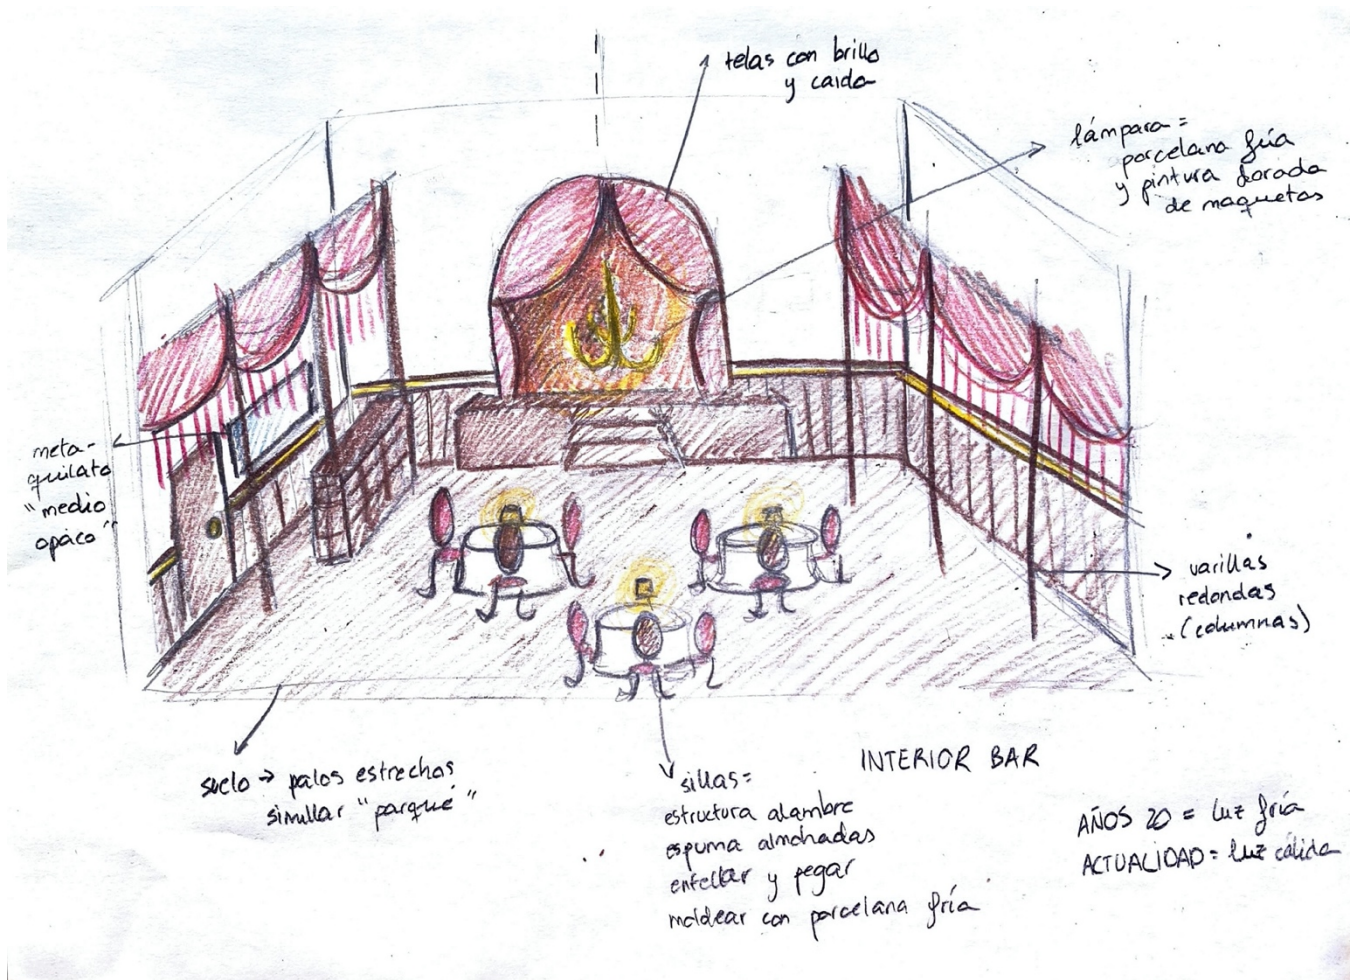 telas con brillo
y caida
lámpara =
porcelana fría
y pintura dorada
de maquetas
meta-
quilato
"medio
opaco"
varillas
redondas
(columnas)
suelo → palos estrechos
simular "parqué"
INTERIOR BAR
sillas =
estructura alambre
espuma almohadas
entellar y pegar
moldear con porcelana fría
AÑOS 20 = luz fría
ACTUALIDAD = luz cálida